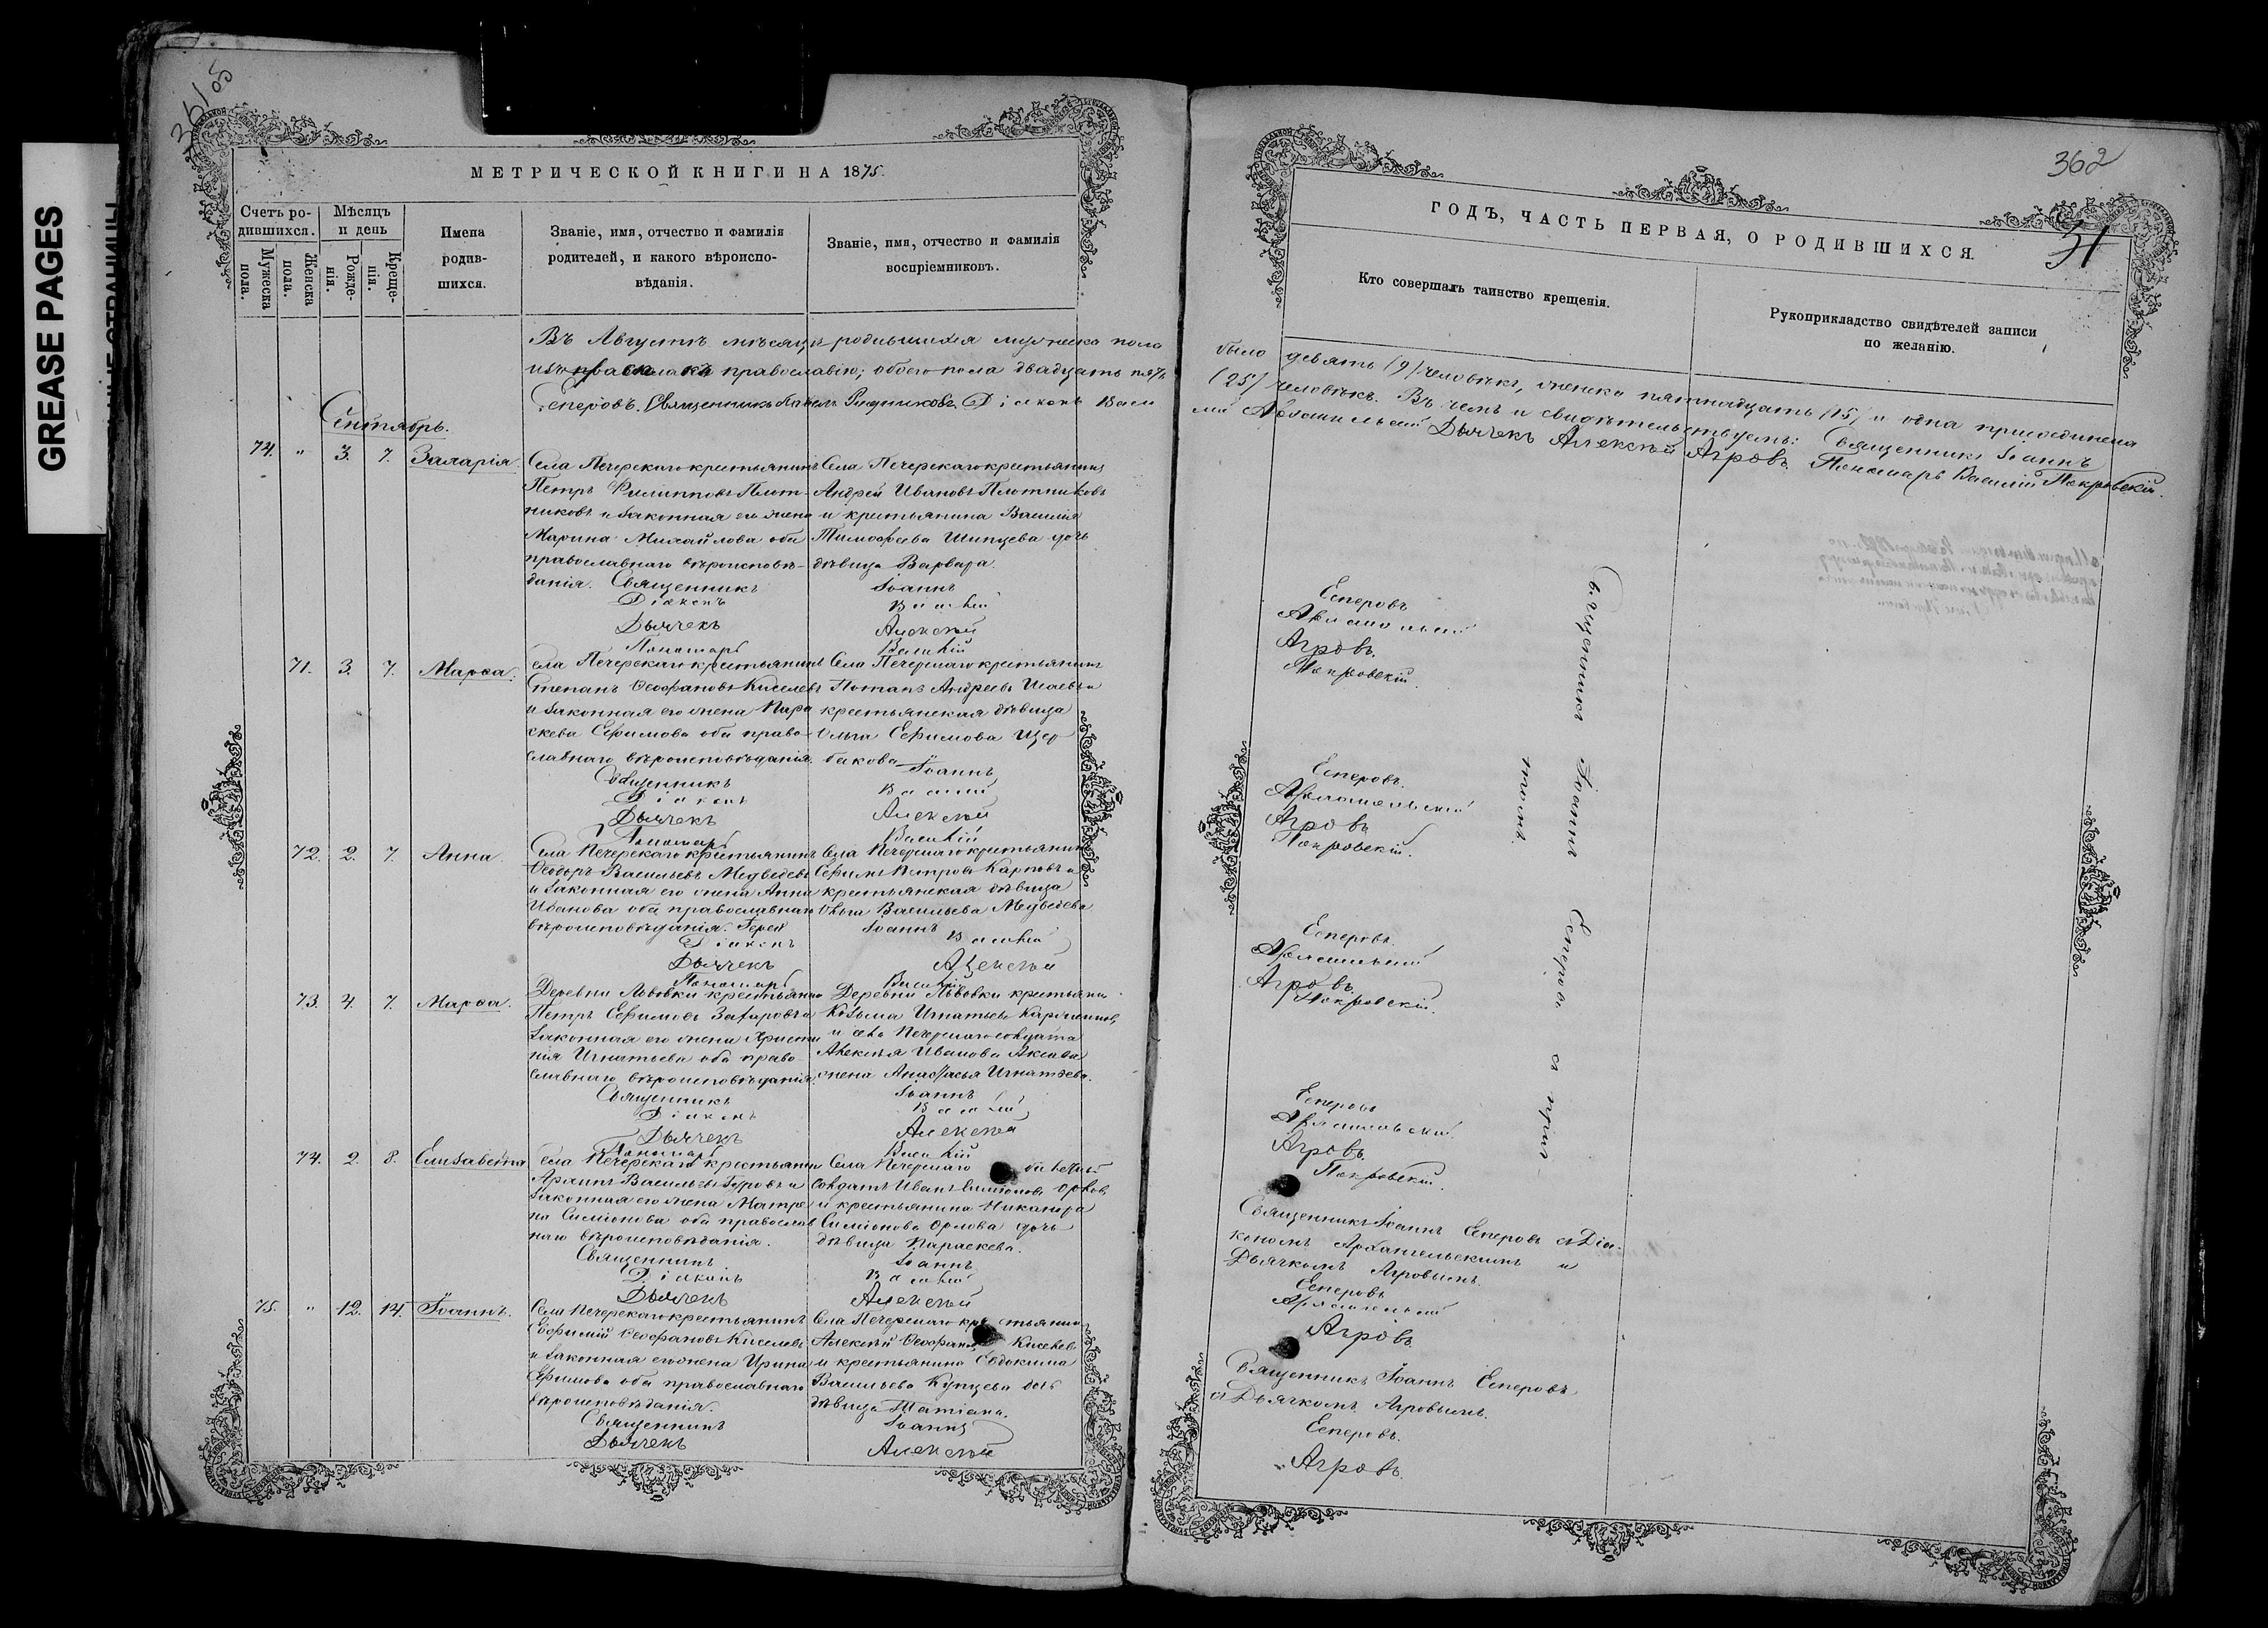 GREASE PAGES
МЕТРИЧЕСКОЙ КНИГИ НА 1875.
Счетъ ро-
дившихся.
Мужеска
пола.
Женска
пола.
Мѣсяцъ
и день
Рожде-
нія.
Креще-
нія.
Имена
родив-
шихся.
Званіе, имя, отчество и фамилія
родителей, и какого вѣроиспо-
вѣданія.
Званіе, имя, отчество и фамилія
воспріемниковъ.
Въ Августѣ мѣсяцѣ родившихся мужеска пола
православію; обоего пола двадцать пять
Есперовъ. Священникъ Діаконъ Васи
Сентябрь.
74. " 3. 7. Захарія.
Села Печерскаго крестьянинъ
Петръ Филипповъ Плот-
никовъ и законная его жена
Марина Михайлова оба
православнаго вѣроисповѣ-
данія. Священникъ
Діаконъ
Дьячекъ
Пономарь
Села Печерскаго крестьянинъ
Андрей Ивановъ Плотниковъ
и крестьянина Василія
Тимофеева Шинцева дочь
дѣвица Варвара.
Іоаннъ
Василій
Алексѣй
Василій
71. 3. 7. Марѳа.
Села Печерскаго крестьянинъ
Степанъ Ѳеофановъ Киселевъ
и законная его жена Пара
скева Ефимова оба право-
славнаго вѣроисповѣданія.
Священникъ
Діаконъ
Дьячекъ
Пономарь
Села Печерскаго крестьянинъ
Потапъ Андреевъ Исаевъ и
крестьянская дѣвица
Ольга Ефимова Щер
бакова
Іоаннъ
Василій
Алексѣй
Василій
72. 2. 7. Анна.
Села Печерскаго крестьянинъ
Ѳеодоръ Васильевъ Медведевъ
и законная его жена Анна
Иванова оба православнаго
вѣроисповѣданія. Іерей
Діаконъ
Дьячекъ
Пономарь
Села Печерскаго крестьянинъ
Ефимъ Петровъ Карповъ и
крестьянская дѣвица
Ольга Васильева Медведева
Іоаннъ
Василій
Алексѣй
Василій
73. 4. 7. Марѳа.
Деревни Львовки крестьянинъ
Петръ Ефимовъ Захаровъ и
законная его жена Христи
нія Игнатьева оба право-
славнаго вѣроисповѣданія.
Священникъ
Діаконъ
Дьячекъ
Пономарь
Деревни Львовки крестьянинъ
Козьма Игнатьевъ
и села Печерскаго солдата
Алексѣя Иванова
жена Анастасья Игнатьева.
Іоаннъ
Василій
Алексѣй
Василій
74. 2. 8. Елизавета
Села Печерскаго крестьянинъ
Архипъ Васильевъ Гуровъ и
законная его жена Матре
на Симіонова оба православ
наго вѣроисповѣданія.
Священникъ
Діаконъ
Дьячекъ
Села Печерскаго
солдатъ Иванъ Симіоновъ Орловъ
и крестьянина Никанора
Симіонова Орлова дочь
дѣвица Параскева.
Іоаннъ
Василій
Алексѣй
75. " 12. 14. Іоаннъ.
Села Печерскаго крестьянинъ
Евфимій Ѳеофановъ Киселевъ
и законная его жена Ирина
Ефимова оба православнаго
вѣроисповѣданія.
Священникъ
Дьячекъ
Села Печерскаго крестьянинъ
Алексѣй Ѳеофановъ Киселевъ
и крестьянина Евдокима
Васильева Купцева дочь
дѣвица Татіана.
Іоаннъ
Алексѣй
362
31
ГОДЪ, ЧАСТЬ ПЕРВАЯ, О РОДИВШИХСЯ.
Кто совершалъ таинство крещенія.
Рукоприкладство свидѣтелей записи
по желанію.
было девять (9) человѣкъ, женска пятнадцать (15) и одна присоединена
(25) человѣкъ. Въ чемъ и свидѣтельствуемъ: Священникъ Іоаннъ
лій Архангельскій Дьячекъ Алексѣй Агровъ. Пономарь Василій Покровскій.
Священникъ Іоаннъ Есперовъ съ прич-
томъ.
Есперовъ
Архангельскій
Агровъ.
Покровскій.
Есперовъ.
Архангельскій
Агровъ
Покровскій.
Есперовъ.
Архангельскій
Агровъ.
Покровскій.
Есперовъ
Архангельскій.
Агровъ.
Покровскій.
Священникъ Іоаннъ Есперовъ съ Діа-
кономъ Архангельскимъ и
Дьячкомъ Агровымъ.
Есперовъ
Архангельскій
Агровъ.
Священникъ Іоаннъ Есперовъ
съ Дьячкомъ Агровымъ.
Есперовъ.
Агровъ.